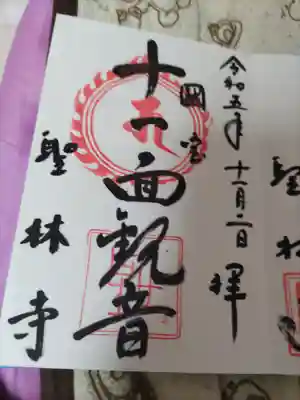 聖林
令和五年 十一月二日 拝
國宝
十一面観音
聖林寺